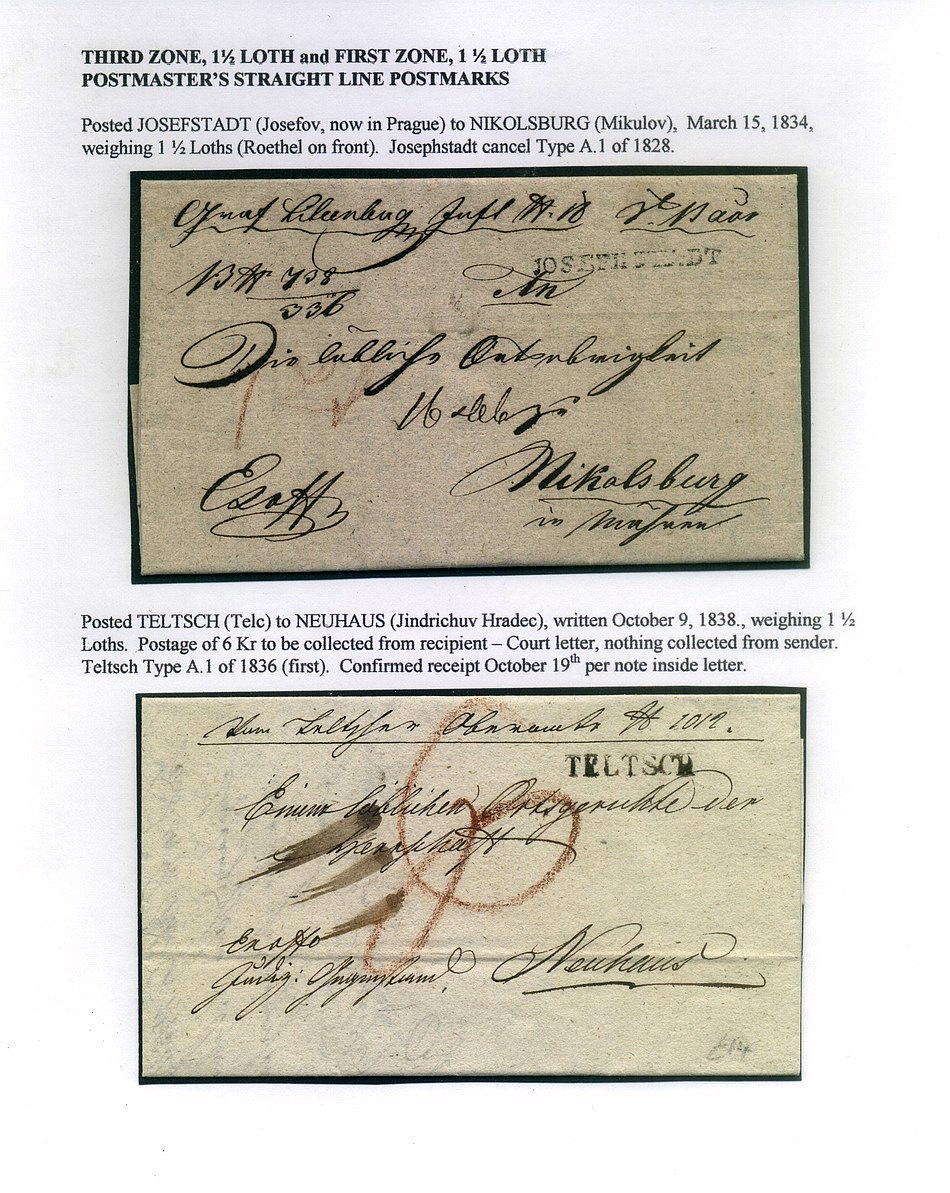 THIRD ZONE, 1½ LOTH and FIRST ZONE, 1 ½ LOTH
POSTMASTER'S STRAIGHT LINE POSTMARKS
Posted JOSEFSTADT (Josefov, now in Prague) to NIKOLSBURG (Mikulov),  March 15, 1834,
weighing 1 ½ Loths (Roethel on front).  Josephstadt cancel Type A.1 of 1828.
Graf
JOSEPHSTADT
738
An
336
Die löbliche
Nikolsburg
Exoff
in Mähren
Posted TELTSCH (Telc) to NEUHAUS (Jindrichuv Hradec), written October 9, 1838., weighing 1 ½
Loths.  Postage of 6 Kr to be collected from recipient – Court letter, nothing collected from sender.
Teltsch Type A.1 of 1836 (first).  Confirmed receipt October 19th per note inside letter.
Vom Teltscher Oberamte № 1012.
TELTSCH
Einem löblichen Ortsgerichte der
Herrschaft
6
Exoffo
Neuhaus